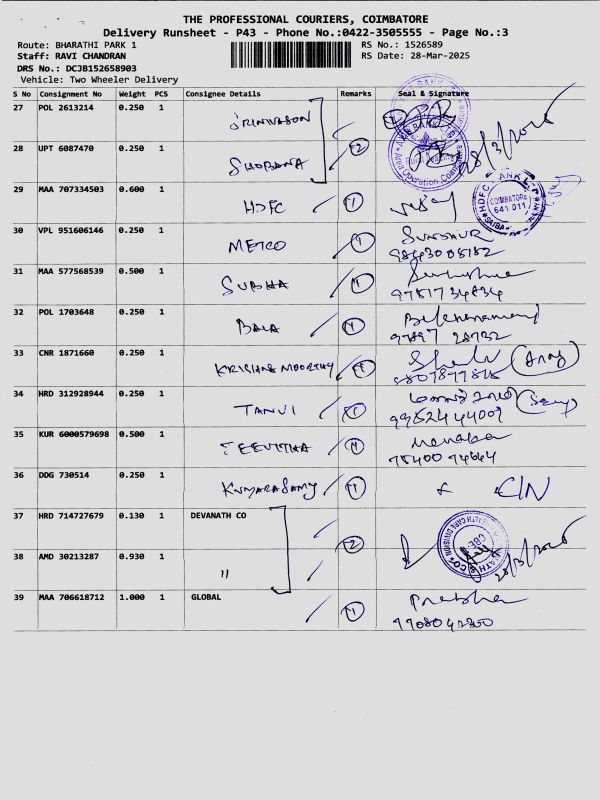 THE PROFESSIONAL COURIERS, COIMBATORE
Delivery Runsheet - P43 - Phone No.:0422-3505555 - Page No.:3
Route: BHARATHI PARK 1
RS No.: 1526589
Staff: RAVI CHANDRAN
RS Date: 28-Mar-2025
DRS No.: DCJB152658903
Vehicle: Two Wheeler Delivery
S No Consignment No Weight PCS Consignee Details Remarks Seal & Signature
27 POL 2613214 0.250 1 SRINIVASON
28 UPT 6087470 0.250 1 SHOBANA 2 28/3/2025
29 MAA 707334503 0.600 1 HDFC 1 HDFC BANK COIMBATORE 641 011
30 VPL 951606146 0.250 1 METCO 1
31 MAA 577568539 0.500 1 SUBHA 1 9751734834
32 POL 1703648 0.250 1 BALA 1
33 CNR 1871660 0.250 1 KRISHNAMOORTHY
34 HRD 312928944 0.250 1 TANVI 1
35 KUR 6000579698 0.500 1 JEEVITHA Menaka
36 DDG 730514 0.250 1 KUMARASAMY 1 C/N
37 HRD 714727679 0.130 1 DEVANATH CO 2
38 AMD 30213287 0.930 1 " 28/3/2025
39 MAA 706618712 1.000 1 GLOBAL 1 Prabha